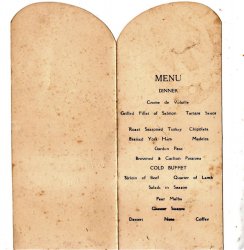 MENU
DINNER
Creme de Volaille
Grilled Fillet of Salmon Tartare Sauce
Roast Seasoned Turkey Chipolata
Braised York Ham Madeira
Garden Peas
Browned & Carlton Potatoes
COLD BUFFET
Sirloin of Beef Quarter of Lamb
Salads in Season
Pear Melba
Dessert Nuts Coffee